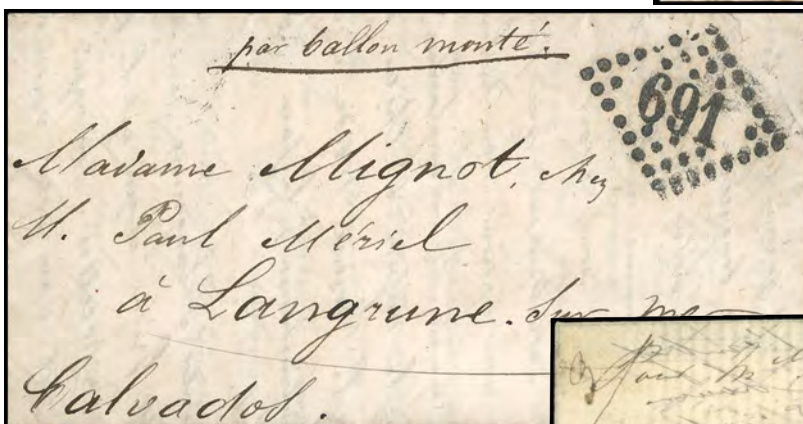 par ballon monté.
691
Madame Mignot, chez
M. Paul Mériel
à Langrune. Sur me
Calvados.
Pour